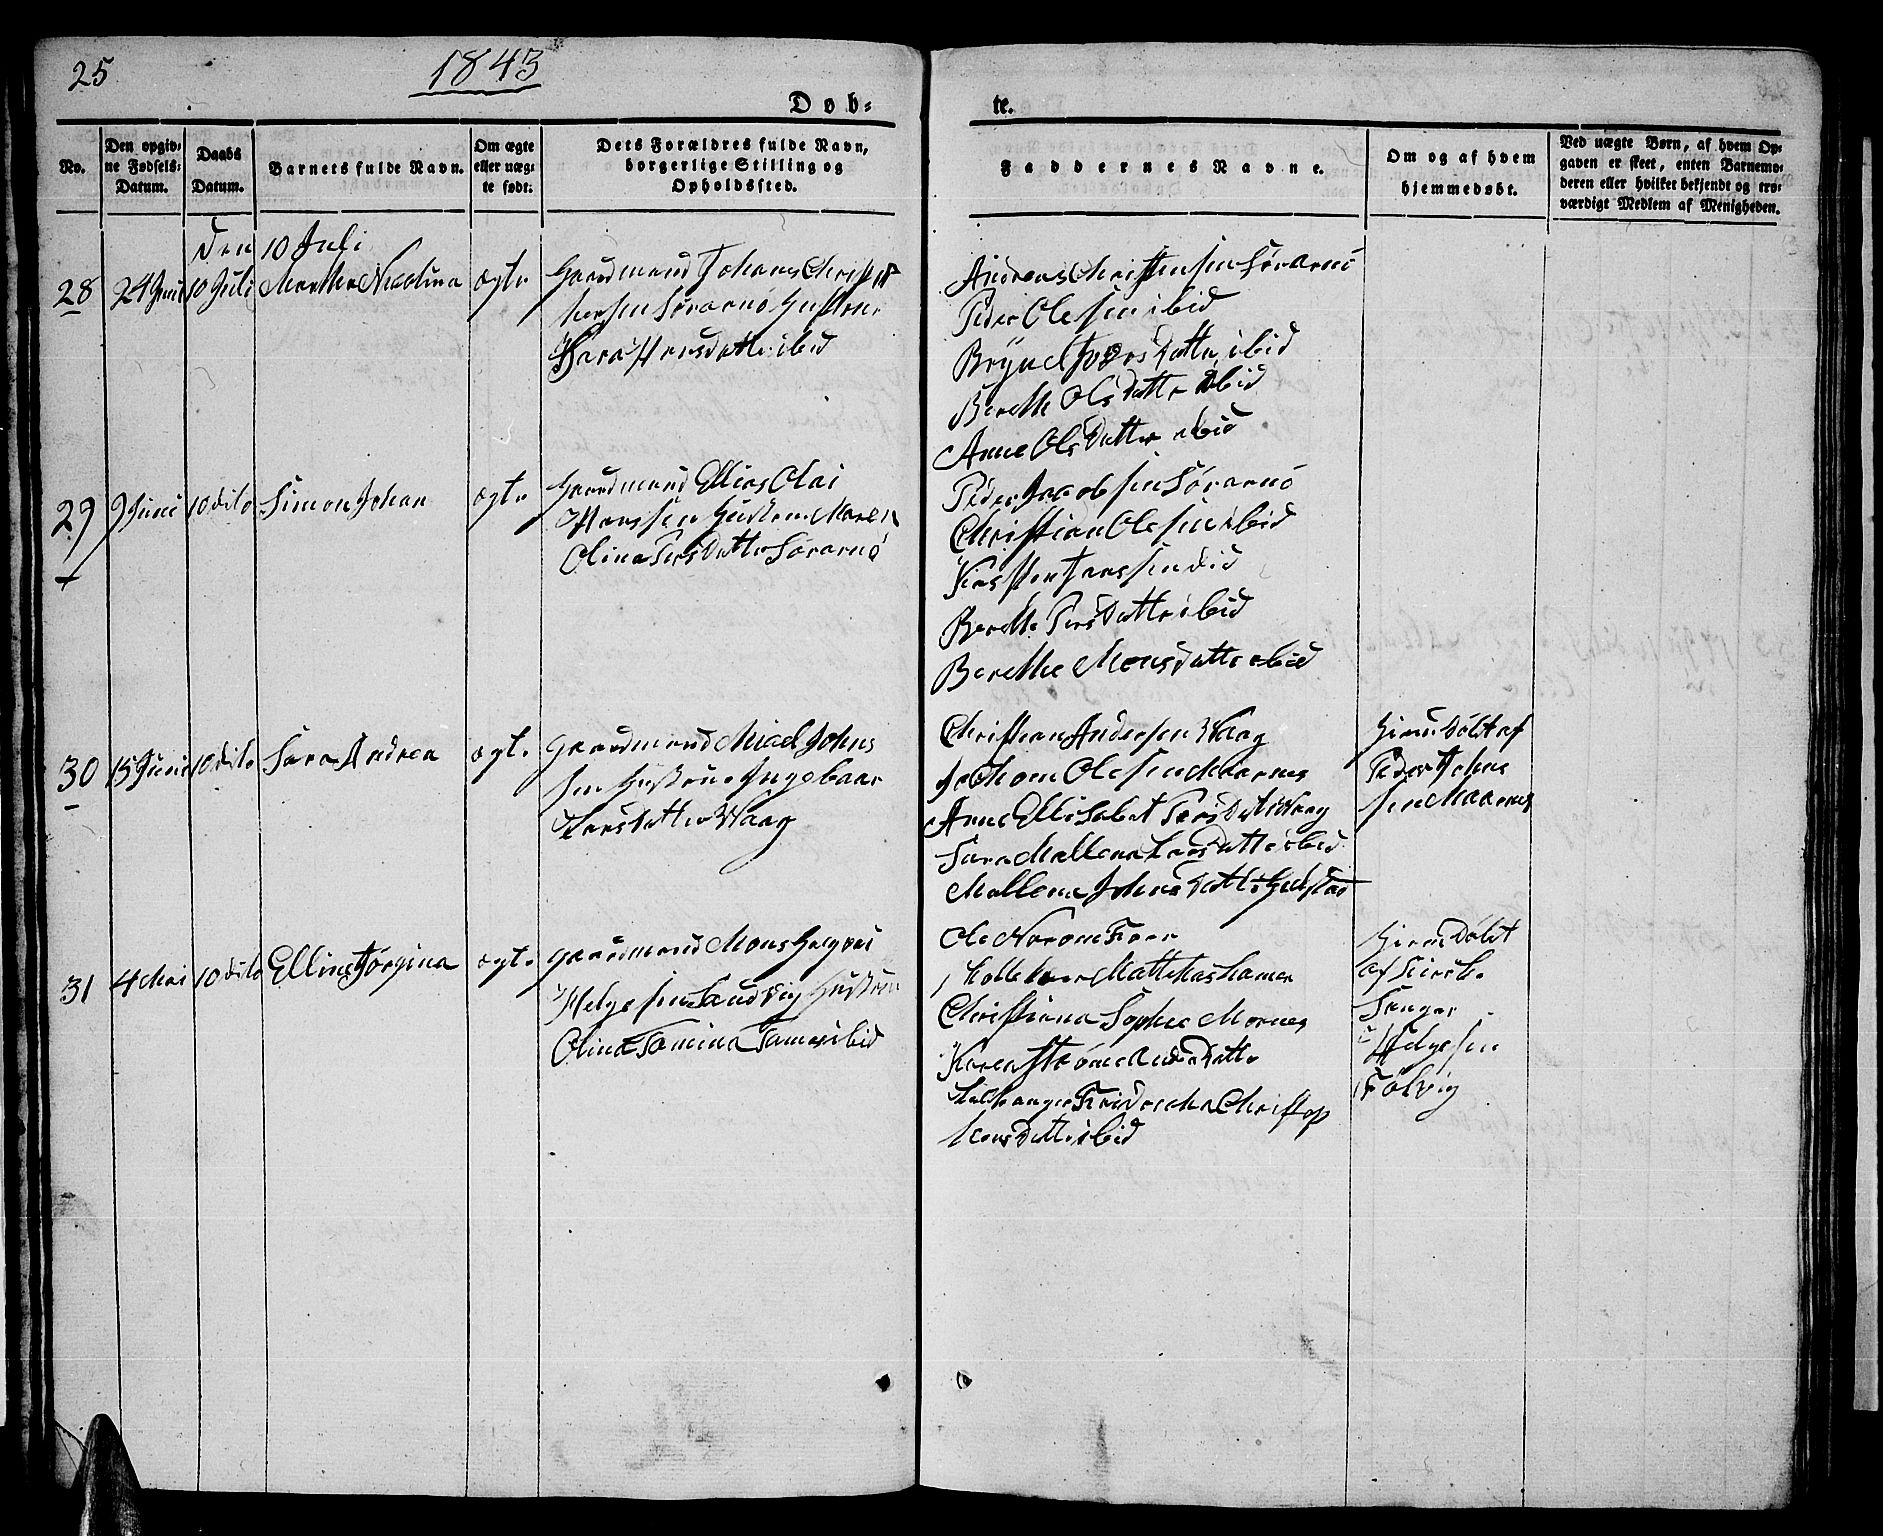 25
1843
Døb-
te.
No.
Den opgiv-
ne Fødsels-
Datum.
Daabs
Datum.
Barnets fulde Navn.
Om ægte
eller uæg-
te født.
Dets Forældres fulde Navn,
borgerlige Stilling og
Opholdsfted.
Faddernes Navne.
Om og af hvem
hjemmedøbt.
Ved uægte Børn, af hvem Op-
gaven er skeet, enten Barnemo-
deren eller hvilket bekjendt og tro-
værdigt Medlem af Menigheden.
den 10 Juli
28
24 Juni
10 Juli
Marthe Nicolina
ægte
Gaardmand Johans Christop
hersen Sørarnø Hustrue
Sara Hansdatter ibid
Andreas Christensen Sørarnø
Peder Olesen ibid
ibid
Berethe Olsdatter ibid
Anne Olsdatter ibid
29
9 Juni
10 dito
Simon Johan
ægte
Gaardmand Ellias Olai
Hanssen Hustrue Maren
Olina Persdatter Sørarnø
Peder Jacobsen Sørarnø
Christian Olesen ibid
Berethe Persdatter ibid
Berethe Monsdatter ibid
30
15 Juni
10 dito
Sara Andrea
ægte
Gaardmand Micel Johns
sen Hustrue Ingebaar
Larsdatter Waag
Christian Andersen Waag
Olesen Maarnes
Anne Ellisabet Persdatter Waag
Sara Mallena Larsdatter ibid
Mallena Johnsdatter
Hiemdøbt af
Peder Johns
sen Maarnes
31
4 Mai
10 dito
Elline Jørgina
ægte
gaardmand Mons
Helgesen Hustrue
Olina Tomina ibid
Ole
Matthias
Christiana Sophie Mornes
Karen
Christop
hersdatter ibid
Hiemdøbt
af Kirke
Sanger
Helgesen